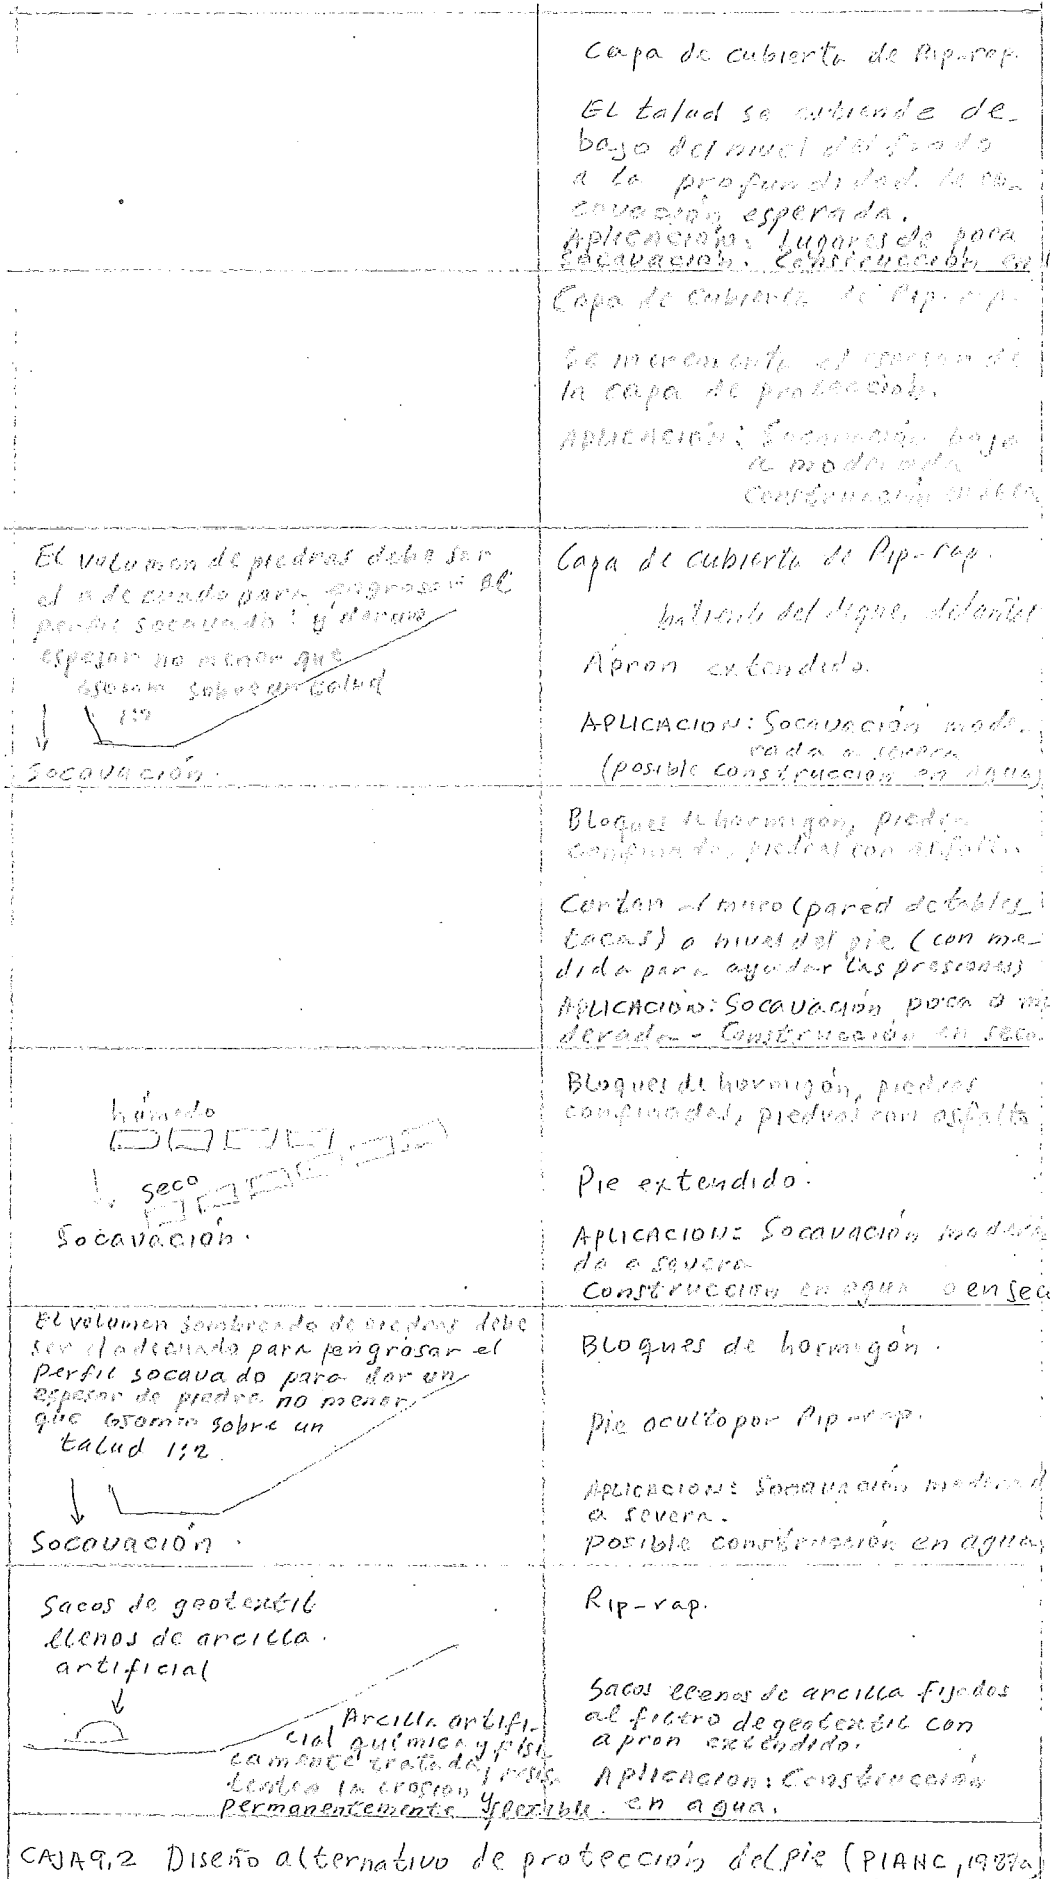 Capa de cubierta de Rip-rap.
EL talud se extiende de-
bajo del nivel del fondo
a la profundidad de so-
cavación esperada.
Aplicación: Lugares de poca
Socavación. Construcción en
Capa de cubierta de Rip-rap.
Se incrementa el espesor de
la capa de protección.
APLICACIÓN: Socavación baja
a moderada
Construcción en
El volumen de piedras debe ser
el adecuado para engrosar el
perfil socavado
espesor no menor que
sobre un talud
1:2
Socavación.
Capa de cubierta de Rip-rap.
del dique, delantal
Apron extendido.
APLICACION: Socavación mode-
rada a severa
(posible construccion en agua)
Bloques de hormigón, piedra
confinada, piedras con asfalto.
Cortan el muro (pared de tables-
tacas) a nivel del pie (con me-
dida para ayudar las presiones)
APLICACIÓN: Socavación poca o mo
derada - Construcción en seco.
húmedo
seco
Socavación.
Bloques de hormigón, piedras
confinadas, piedras con asfalto
Pie extendido.
APLICACION: Socavación modera
da a severa
Construccion en agua o en sec
El volumen sombreado de piedras debe
ser el adecuado para engrosar el
perfil socavado para dar un
espesor de piedra no menor
que sobre un
talud 1:2
Socavación.
Bloques de hormigón.
pie oculto por Rip-rap.
APLICACION: Socavación moderad
a severa.
posible construcción en agua,
Sacos de geotextil
llenos de arcilla.
artificial
Arcilla artifi-
cial química y físi
camente tratada, resis
tente a la erosion y
permanentemente flexible.
Rip-rap.
Sacos llenos de arcilla fijados
al filtro de geotextil con
apron extendido.
Aplicacion: Construcción
en agua.
CAJA 9,2 Diseño alternativo de protección del pie (PIANC, 1987a)